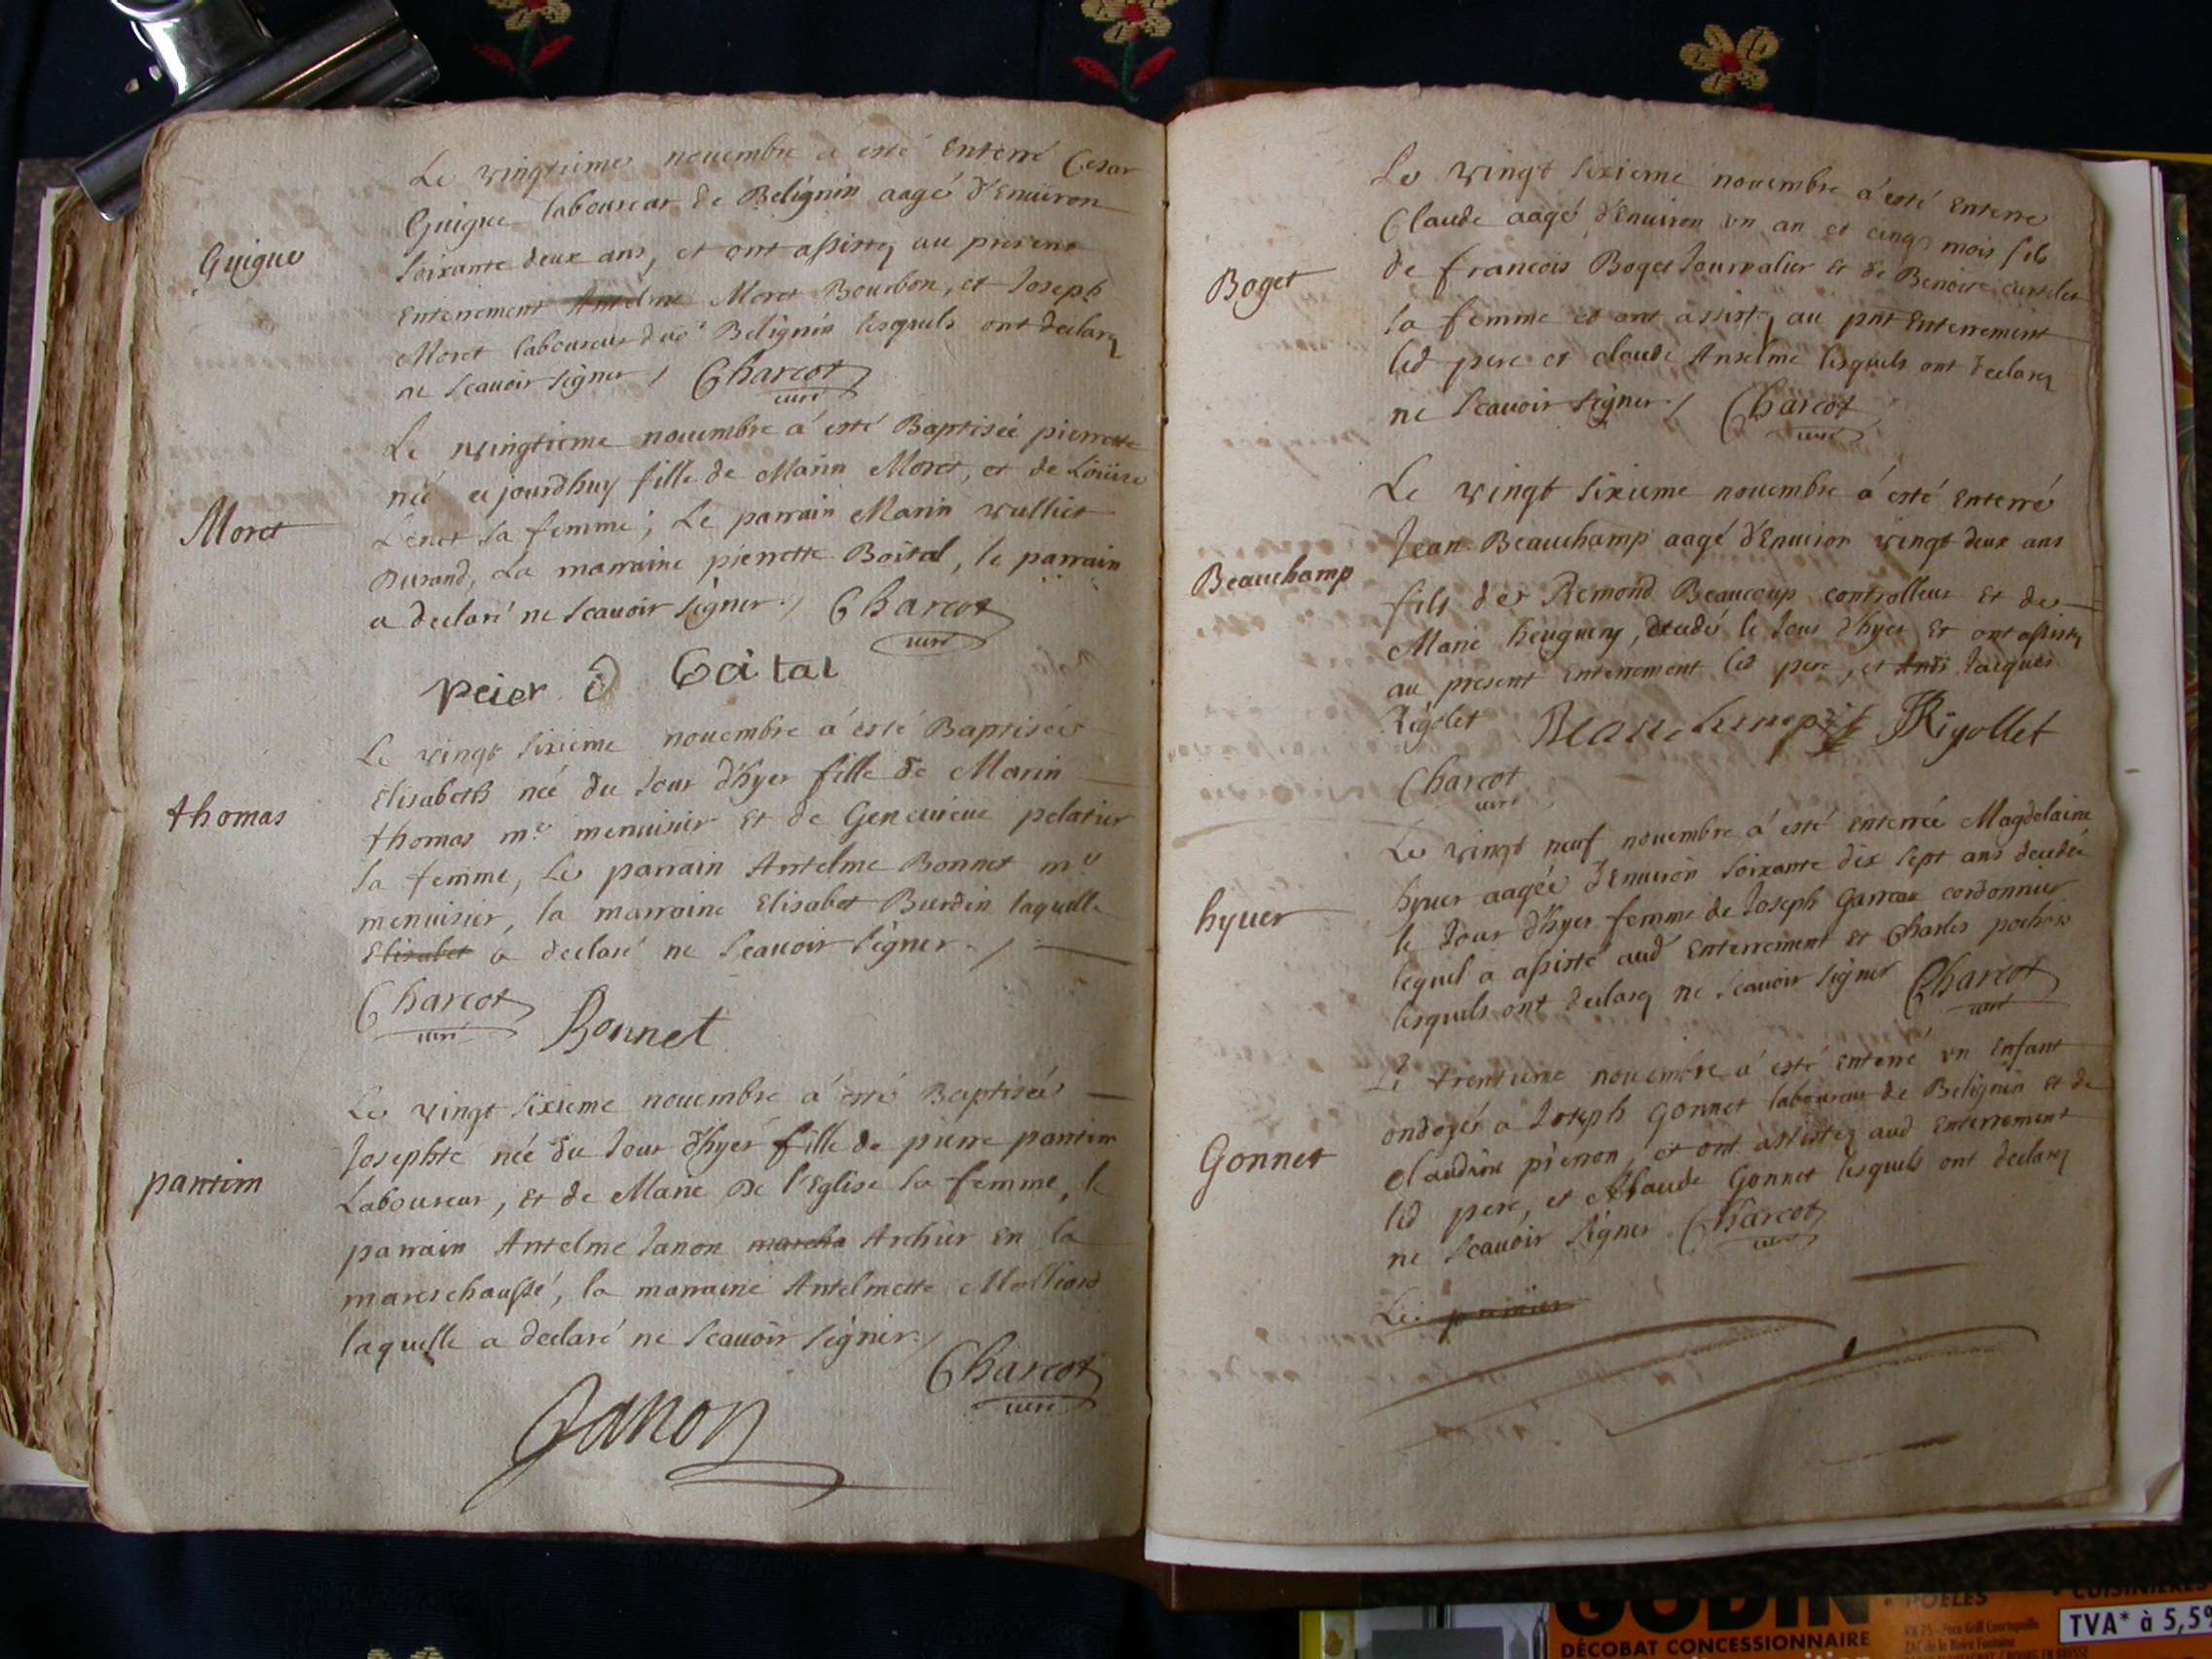 Guigue
Le vingtieme novembre a esté Enterré Cesar
Guigue laboureur de Belignin aagé d'Environ
soixante deux ans, et ont assistez au present
Enterrement Antelme Moret Bourbon, et Joseph
Moret laboureurs dud Belignin lesquels ont declarez
ne scavoir signer / Charcot
curé
Moret
Le vingtieme novembre a esté Baptisée pierrette
née ce jourdhuy fille de Marin Moret, et de Loüise
sa femme; Le parrain Marin vulliet
Durand, La marraine pierrette Boital, le parrain
a declaré ne scavoir signer / Charcot
curé
peier Boital
thomas
Le vingt sixieme novembre a esté Baptisée
Elisabeth née du Jour d'hyer fille de Marin
thomas me menuisier Et de Genevieve pelatier
sa femme, Le parrain Antelme Bonnet me
menuisier, la marraine Elisabet Burdin laquelle
Elisabet a declaré ne scavoir signer /
Charcot
curé
Bonnet
pantin
Le vingt sixieme novembre a esté Baptisée
Josephte née du Jour d'hyer fille de pierre pantin
Laboureur, et de Marie De l'Eglise sa femme, le
parrain Antelme Janon Archier En la
mareschaussé, la marraine Antelmette Molliard
laquelle a declaré ne scavoir signer /
Charcot
curé
Janon
Boget
Le vingt sixieme novembre a esté Enterré
Claude aagé d'Environ un an et cinq mois fils
de francois Boget Journalier Et de Benoite
sa femme et ont assistez au pnt Enterrement
led pere et claude Anselme lesquels ont declarez
ne scavoir signer / Charcot
curé
Beauchamp
Le vingt sixieme novembre a esté Enterré
Jean Beauchamp aagé d'Environ vingt deux ans
fils de sr Remond Beaucoup controlleur Et de
Marie heugueny, decedé le Jour d'hyer Et ont assistez
au present Enterrement led pere, et Jacques
Rigolet Beauchamp JRigollet
Charcot
curé
hyver
Le vingt neuf novembre a esté Enterrée Magdelaine
hyver aagée d'Environ soixante dix sept ans decedée
le Jour d'hyer femme de Joseph Garreau cordonnier
lequel a assisté aud Enterrement Et Charles pochon
lesquels ont declarez ne scavoir signer Charcot
curé
Gonnet
Le trentieme novembre a esté Enterré un Enfant
ondoyé a Joseph Gonnet laboureur de Belignin Et de
claudine pierron, et ont assistez aud Enterrement
led pere, et Claude Gonnet lesquels ont declarez
ne scavoir signer Charcot
curé
Le premier
GODIN
DÉCOBAT CONCESSIONNAIRE
POELES
CUISINIERES
TVA* à 5,5%